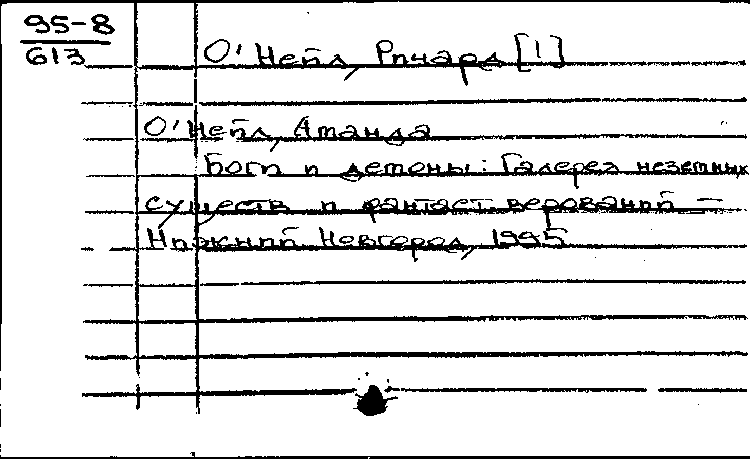 95-8
613
О'Нейл, Ричард [1]
О'Нейл, Аманда
Боги и демоны: Галерея неземных
существ и фантаст. верований –
Нижний Новгород, 1995